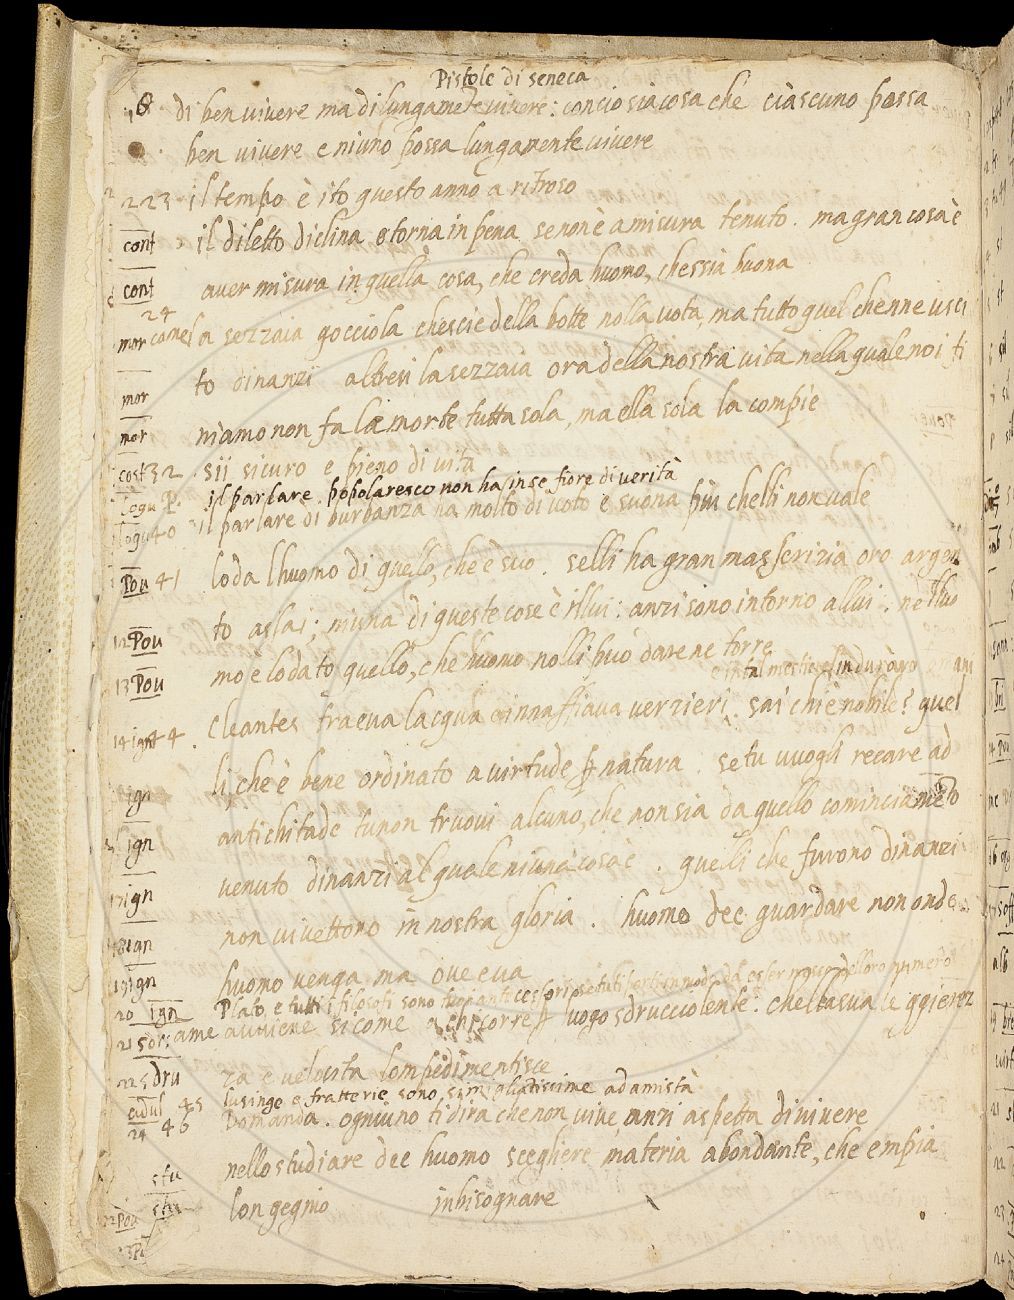 Pistole di seneca
6 di ben vivere ma di lungamẽte vivere: conciosiacosa che ciascuno possa
ben vivere e niuno possa lungamente vivere
223 il tempo è ito questo anno a ritroso
cont il diletto diclina e torna in pena se non è a misura tenuto. ma gran cosa è
cont aver misura in quella cosa, che creda huomo, chessia buona
24
mor come la sezzaia gocciola chescie della botte nolla vota, ma tutto quel chenne usci
mor to dinanzi altresi la sezzaia ora della nostra vita nella quale noi fi
mor niamo non fa la morte tutta sola, ma ella sola la compie
cost 32 sii sicuro e pieno di vita
loqu il parlare popolaresco non ha in se fiore di verità
loqu 40 il parlare di burbanza ha molto di voto e suona più chelli non vale
Pou 41 loda lhuomo di quello, che è suo. selli ha gran masserizia oro argen
12 Pou to assai; niuna di queste cose è illui: anzi sono intorno allui. nelluo
13 Pou mo è lodato quello, che huomo nolli può dare ne torre
14 ign 44 Cleantes traeva lacqua e innaffiava verzieri. sai chi è nobile? quel
ign li che è bene ordinato a virtude ꝑ natura. se tu vuogli recare ad
ign antichitade tu non truovi alcuno, che non sia da quello cominciamẽto
17 ign venuto dinanzi al quale niuna cosa è. quelli che furono dinanzi
18 ign non vivettono in nostra gloria. huomo dee guardare non onde
19 ign huomo venga ma ove e va
20 ign Plato, e tutti i filosofi sono tuoi antecessori se tu ti porti in modo da esser
21 sor: ame avviene sicome a chi corre ꝑ luogo sdrucciolente: chella sua leggierez
22 sdru za e velocita lompedimentisce
adul 45 lusinge e fratterie sono simigliatissime ad amistà
24 46 Domanda. ogniuno ti dira che non vive, anzi aspetta di vivere
stu nello studiare dee huomo scegliere materia abondante, che empia
stu longegnio inbisognare
22 Pou